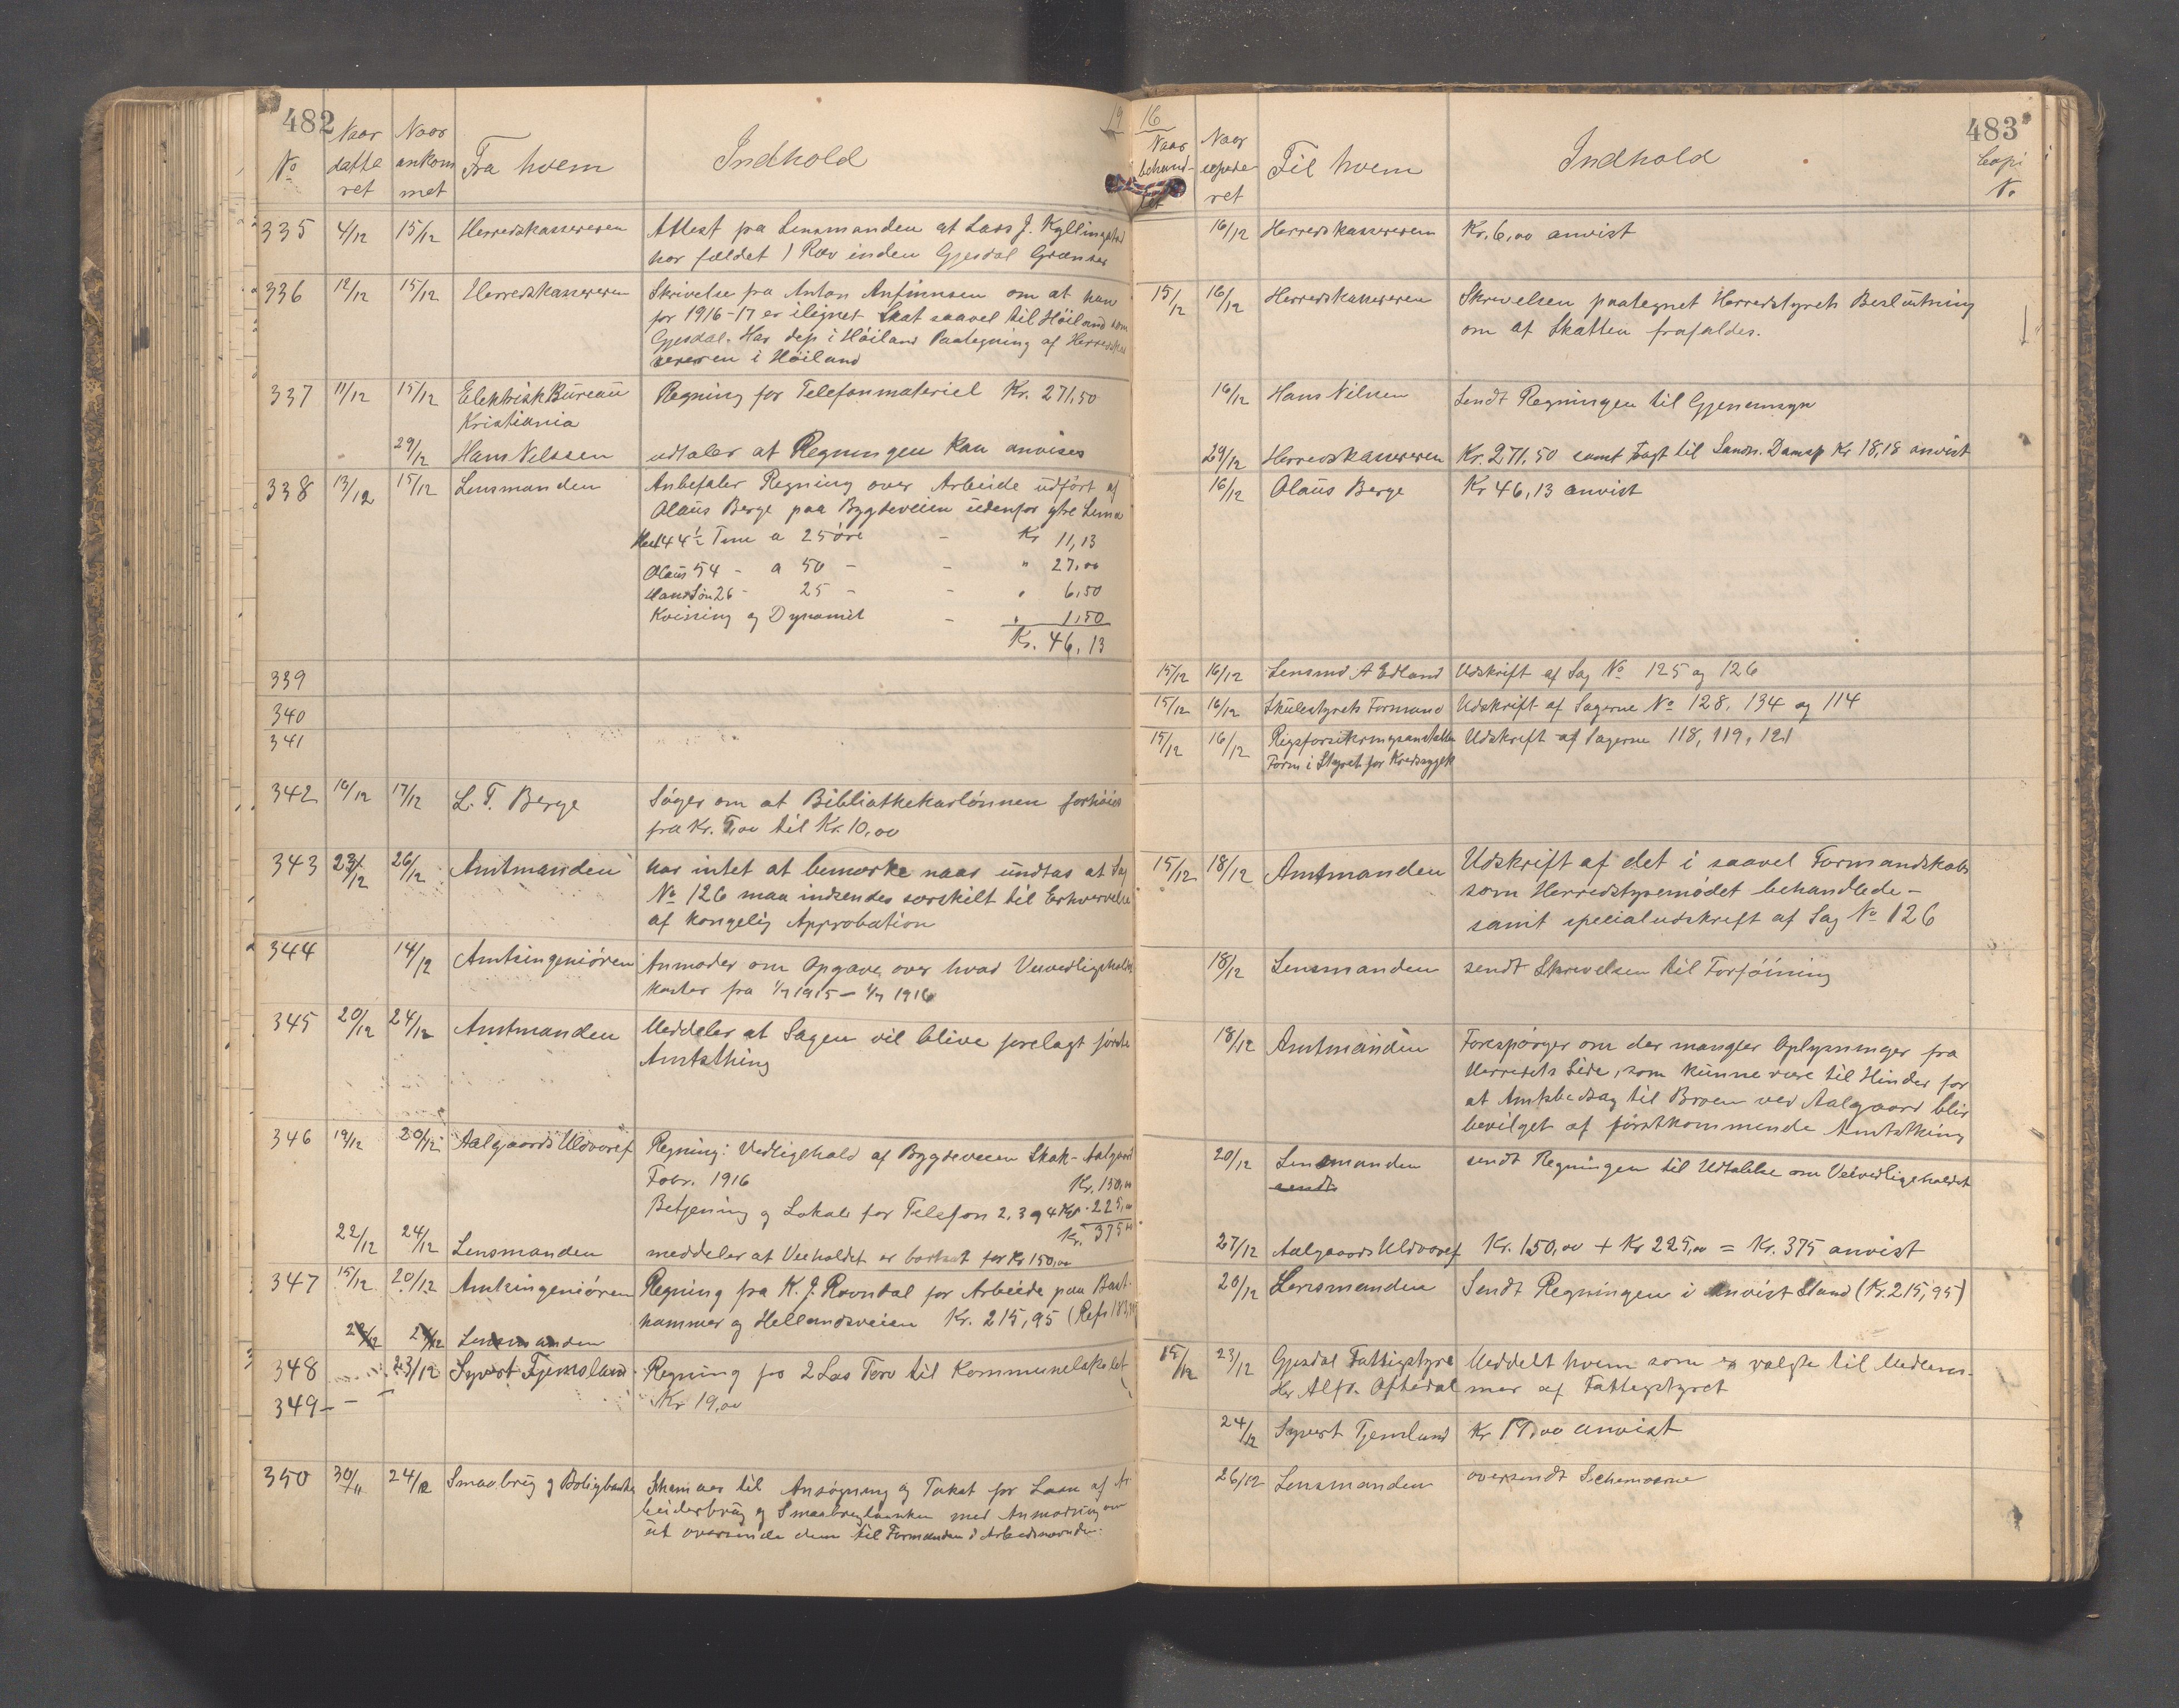 482
No
Naar datte ret
Naar ankom met
Fra hvem
Indhold
19
335 4/12 15/12 Herredskassereren Attest fra Lensmanden at Lars J. Kyllingstad
har fældet 1 Ræv inden Gjesdal Grænser
336 12/12 15/12 Herredskassereren Skrivelse fra Anton Anfinnsen om at han
for 1916-17 er ilignet Skat saavel til Höiland som
Gjesdal. Har i Höiland Paategning af Herredskas
sereren i Höiland
337 11/12 15/12 Elektrisk Bureau Regning for Telefonmateriel Kr. 271,50
Kristiania
29/12 Hans Nilssen udtaler at Regningen kan anvises
338 13/12 15/12 Lensmanden Anbefaler Regning over Arbeide udfört af
Olaus Berge paa Bygdeveien udenfor ytre Lima
44 1/2 Time a 25 öre - Kr 11,13
Olaus 54 - a 50 - - " 27,00
Hans Sön 26 - 25 - - " 6,50
Kvissing og Dynamit - " 1,50
Kr. 46,13
339
340
341
342 16/12 17/12 L. T. Berge Söger om at Bibliothekarlönnen forhöies
fra Kr. 5,00 til Kr. 10,00
343 23/12 26/12 Amtmanden har intet at bemerke naar undtas at Sag
No 126 maa indsendes særskilt til Erhvervelse
af kongelig Approbation
344 14/12 Amtsingeniören Anmoder om Opgave over hvad Veivedligeholdet
koster fra 1/7 1915 – 1/7 1916
345 20/12 24/12 Amtmanden Meddeler at Sagen vil blive forelagt förste
Amtsthing
346 19/12 20/12 Aalgaards Uldvaref Regning: Vedligehold af Bygdeveien Skak - Aalgaard
Fobr. 1916 Kr. 150,00
Betjening og Lokale for Telefon 2, 3 og 4 Kv - 225,00
Kr. 375,00
22/12 24/12 Lensmanden meddeler at Veiholdet er bortsat for Kr 150,00
347 15/12 20/12 Amtsingeniören Regning fra K. J. Ravndal for Arbeide paa
hammer og Hellandsveien Kr. 215,95
Lensmanden
348 23/12 Syvert Tjemsland Regning for 2 Las Torv til Kommunelokalet
349 – – – Kr 19,00
350 30/11 24/12 Smaabrug og Boligbanken Skemaer til Ansögning og Takst for Laan af Ar
beiderbrug og Smaabrugbanken med Anmodning om
at oversende dem til Formanden i Arbeidsnævnden.
16
483
Naar behand- let
Naar expede- ret
Til hvem
Indhold
Copi No
16/12 Herredskassereren Kr. 6,00 anvist
15/12 16/12 Herredskassereren Skrivelsen paategnet Herredstyrets Beslutning
om at Skatten frafaldes.
16/12 Hans Nilsen Sendt Regningen til Gjenemsyn
29/12 Herredskassereren Kr. 271,50 samt Fragt til Sandn. Damsp Kr 18,18 anvist
16/12 Olaus Berge Kr 46,13 anvist
15/12 16/12 Lensmd A Edland Udskrift af Sag No 125 og 126
15/12 16/12 Skulestyrets Formand Udskrift af Sagerne No 128, 134 og 114
15/12 16/12 Rigsforsikringsanstalten Udskrift af Sagerne 118, 119, 121
Form i Styret for Kredssygek
15/12 18/12 Amtmanden Udskrift af det i saavel Formandskabs
som Herredstyremödet behandlede -
samt specialudskrift af Sag No 126
18/12 Lensmanden sendt Skrivelsen til Forföining
18/12 Amtmanden Forespörger om der mangler Oplysninger fra
Herredets Side, som kunne være til Hinder for
at Amtsbidrag til Broen ved Aalgaard blir
bevilget af förstkommende Amtsthing
20/12 Lensmanden sendt Regningen til Udtalelse om Veivedligeholdet
sendt
27/12 Aalgaards Uldvaref Kr. 150,00 + Kr 225,00 = Kr. 375 anvist
20/12 Lensmanden Sendt Regningen i anvist Stand (Kr. 215,95)
15/12 23/12 Gjesdal Fattigstyre Meddelt hvem som er valgte til Medlem-
Hr Alfr. Oftedal mer af Fattigstyret
24/12 Syvert Tjemsland Kr 19,00 anvist
26/12 Lensmanden oversendt Schemaerne